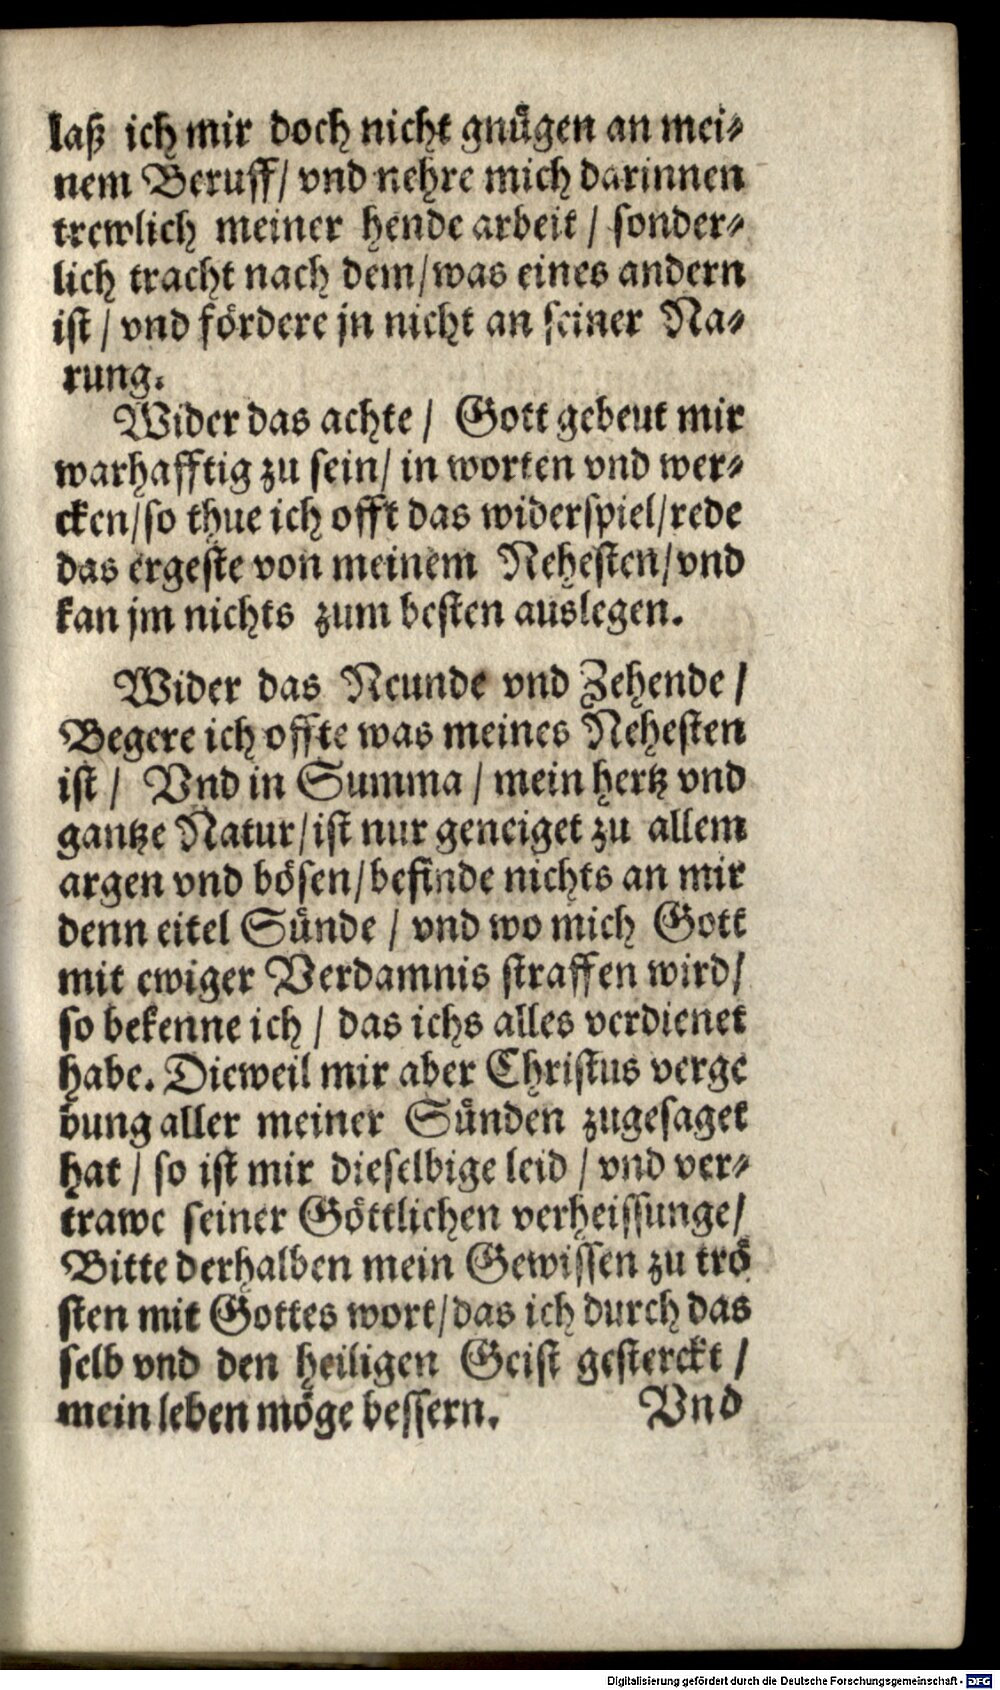 laß ich mir doch nicht gnuͤgen an mei⸗
nem Beruff/ vnd nehre mich darinnen
trewlich meiner hende arbeit / sonder⸗
lich tracht nach dem/was eines andern
ist / vnd foͤrdere jn nicht an seiner Na⸗
rung.
Wider das achte / Gott gebeut mir
warhafftig zu sein/ in worten vnd wer⸗
cken/so thue ich offt das widerspiel/rede
das ergeste von meinem Nehesten/vnd
kan jm nichts zum besten auslegen.
Wider das Neunde vnd Zehende /
Begere ich offte was meines Nehesten
ist / Vnd in Summa / mein hertz vnd
gantze Natur/ist nur geneiget zu allem
argen vnd boͤsen/befinde nichts an mir
denn eitel Suͤnde / vnd wo mich Gott
mit ewiger Verdamnis straffen wird/
so bekenne ich / das ichs alles verdienet
habe. Dieweil mir aber Christus verge
bung aller meiner Suͤnden zugesaget
hat / so ist mir dieselbige leid / vnd ver⸗
trawe seiner Goͤttlichen verheissunge/
Bitte derhalben mein Gewissen zu troͤ
sten mit Gottes wort/das ich durch das
selb vnd den heiligen Geist gesterckt /
mein leben moͤge bessern. Vnd
Digitalisierung gefördert durch die Deutsche Forschungsgemeinschaft - DFG